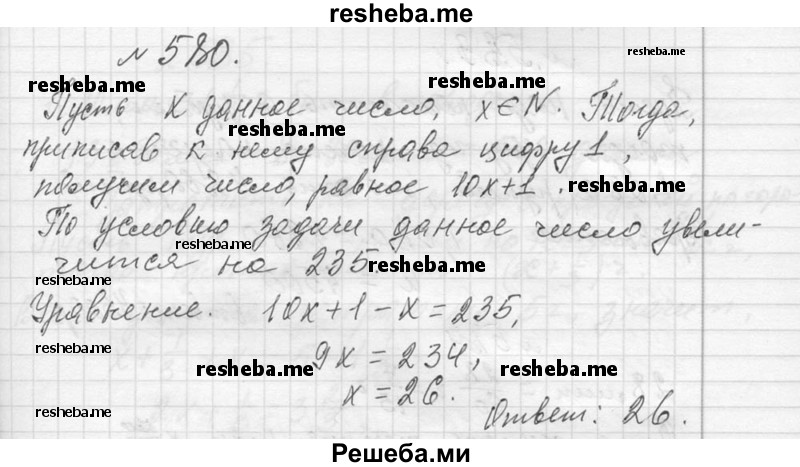 resheba.me
№ 580.
resheba.me
resheba.me
resheba.me
Пусть х данное число, x∈N. Тогда,
resheba.me
приписав к нему справа цифру 1,
получим число, равное 10х+1.
resheba.me
По условию задачи данное число увели-
resheba.me
чится на 235
resheba.me
resheba.me
Уравнение. 10х+1-х=235,
resheba.me
9х=234,
resheba.me
resheba.me
х=26.
resheba.me
Ответ: 26.
Решеба.ми